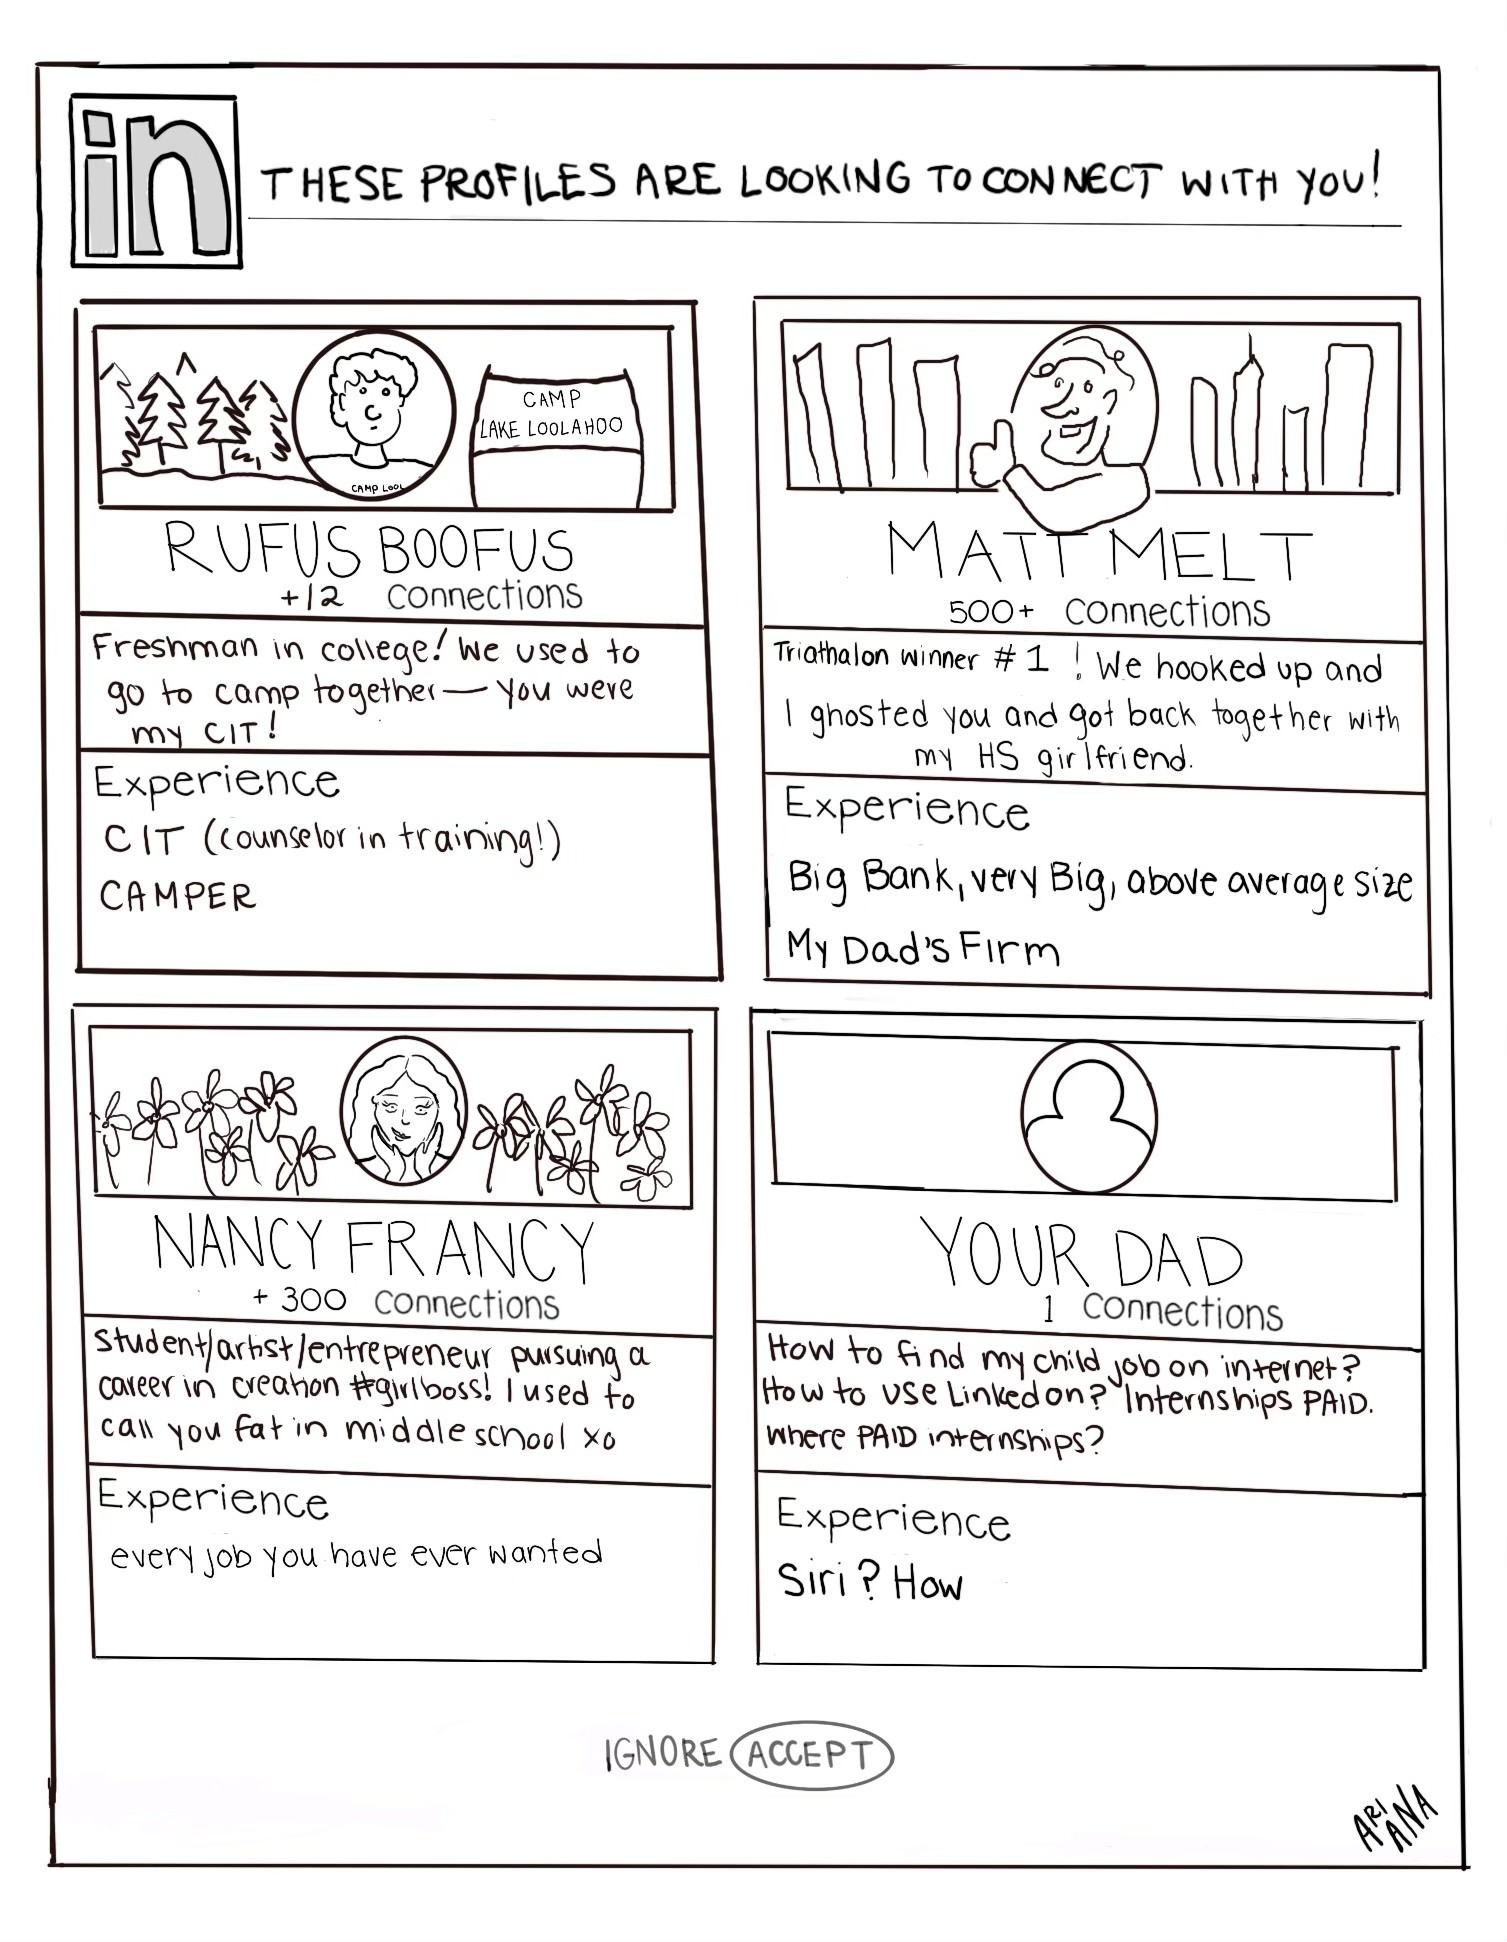 in
THESE PROFILES ARE LOOKING TO CONNECT WITH YOU!
CAMP
LAKE LOOLAHOO
CAMP LOOL
RUFUS BOOFUS
+12 Connections
Freshman in college! We used to
go to camp together— you were
my CIT!
Experience
CIT (counselor in training!)
CAMPER
MATT MELT
500+ Connections
Triathalon winner #1 ! We hooked up and
I ghosted you and got back together with
my HS girlfriend.
Experience
Big Bank, very Big, above average size
My Dad's Firm
NANCY FRANCY
+ 300 Connections
Student/artist/entrepreneur pursuing a
career in creation #girlboss! I used to
call you fat in middle school xo
Experience
every job you have ever wanted
YOUR DAD
1 Connections
How to find my child job on internet?
How to use Linkedon? Internships PAID.
Where PAID internships?
Experience
Siri? How
IGNORE ACCEPT
ARI
ANA